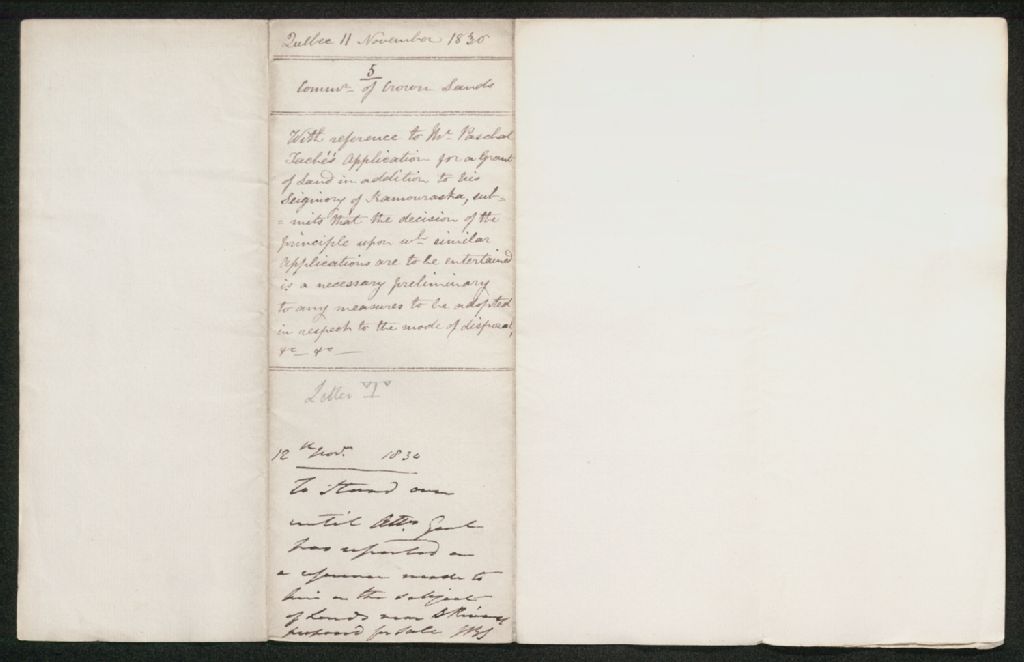 Quebec 11 November 1830
5
Commr. of Crown Lands
With reference to Mr. Paschal
Taché's Application for a Grant
of Land in addition to his
Seigniory of Kamouraska, sub=
=mits that the decision of the
principle upon wh. similar
Applications are to be entertained
is a necessary preliminary
to any measures to be adopted
in respect to the mode of disposal,
&c &c
Letter
12th Novr. 1830
To Stand over
until Atty. Genl
has reported on
a reference made to
him on the subject
of Lands near
proposed for Sale